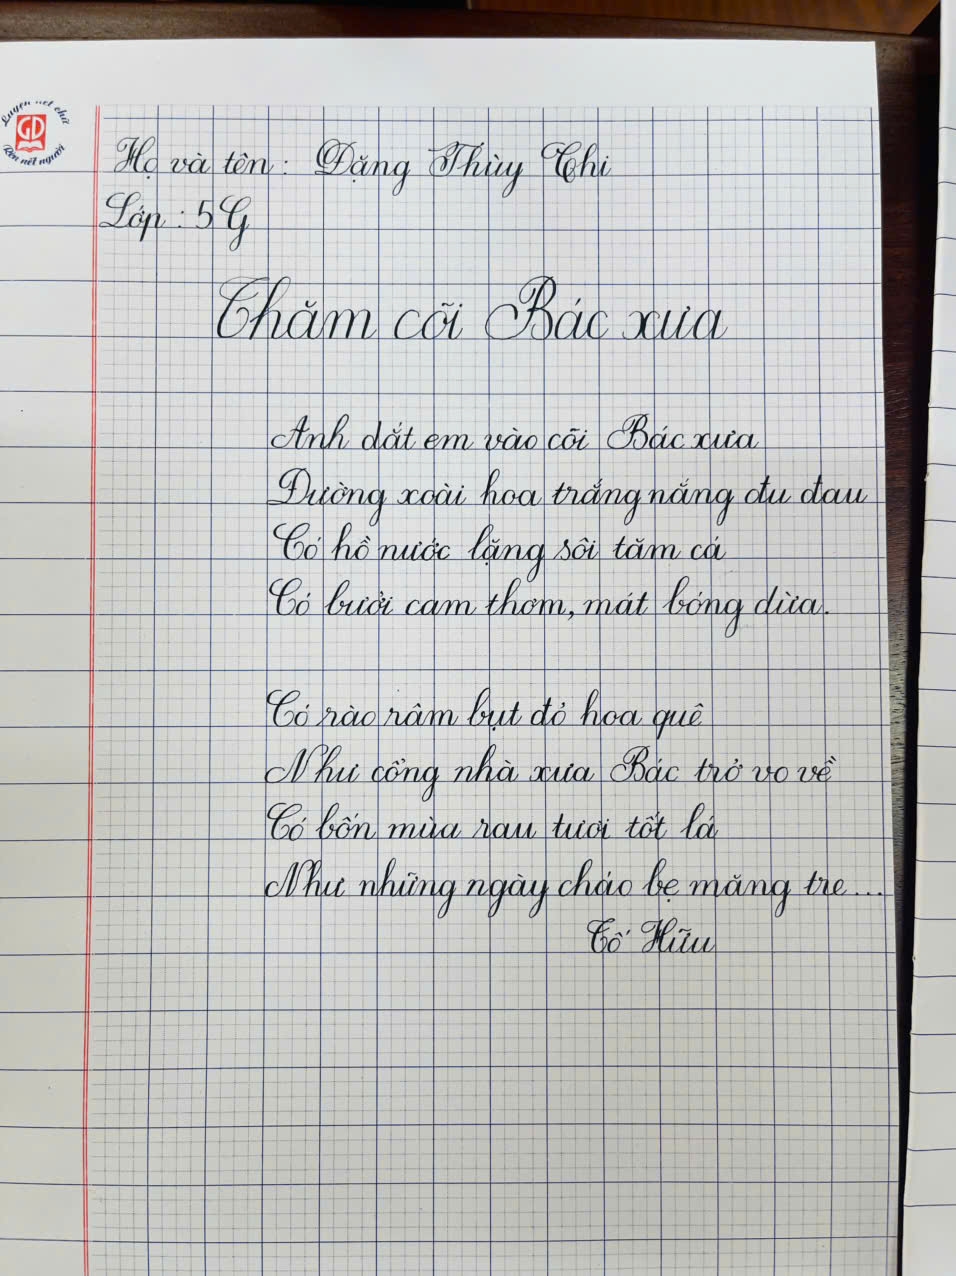 Luyện nét chữ
GD
Rèn nết người
Họ và tên : Đặng Thùy Chi
Lớp : 5G
Thăm cõi Bác xưa
Anh dắt em vào cõi Bác xưa
Đường xoài hoa trắng nắng đu đưa
Có hồ nước lặng sôi tăm cá
Có bưởi cam thơm, mát bóng dừa.
Có rào râm bụt đỏ hoa quê
Như cổng nhà xưa Bác trở vo về
Có bốn mùa rau tươi tốt lá
Như những ngày cháo bẹ măng tre...
Tố Hữu